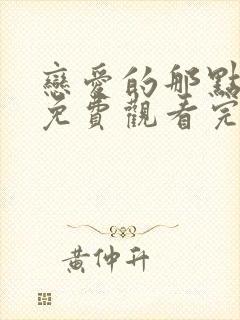 戀愛的那點
免費觀看完
黃仲升